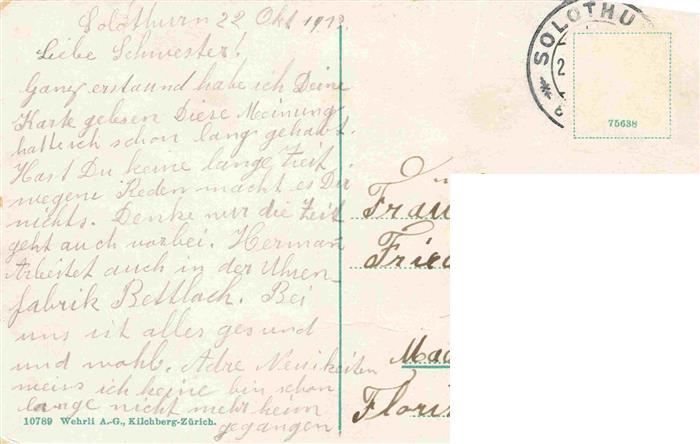 Solothurn 22 Okt 191
Liebe Schwester!
Ganz erstaund habe ich Deine
Karte gelesen Diese Meinung
hatte ich schon lang gehabt.
Hast Du keine lange Zeit
wegene Reden macht es Dir
nichts. Denke nur die Zeit
geht auch vorbei. Herman
Arbeitet auch in der Uhren-
fabrik Bettlach. Bei
uns ist alles gesund
und wohl. Adre Neuikeiten
weiss ich keine bin schon
lange nicht mehr heim
gegangen
10789 Wehrli A.-G., Kilchberg-Zürich.
SOLOTHU
2
75638
Frau
Fried
Mad
Flori